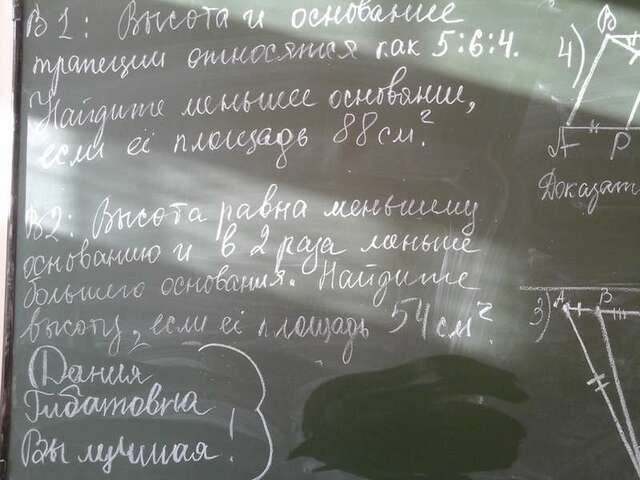 В 1: Высота и основание
трапеции относятся как 5:6:4.
Найдите меньшее основание,
если её площадь 88 см².
В2: Высота равна меньшему
основанию и в 2 раза меньше
большего основания. Найдите
высоту, если её площадь 54 см².
Дания
Гибатовна
Вы лучшая!
4)
В
А
Р
Доказат
3)
А
В